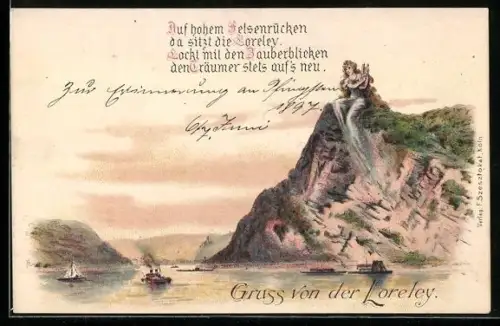 Auf hohem Felsenrücken
da sitzt die Loreley.
Lockt mit den Zauberblicken
den Träumer stets auf's neu.
Zur Erinnerung an Pfingsten
1897
6/7 Juni
Gruss von der Loreley.
Verlag F. Szesztokat, Köln